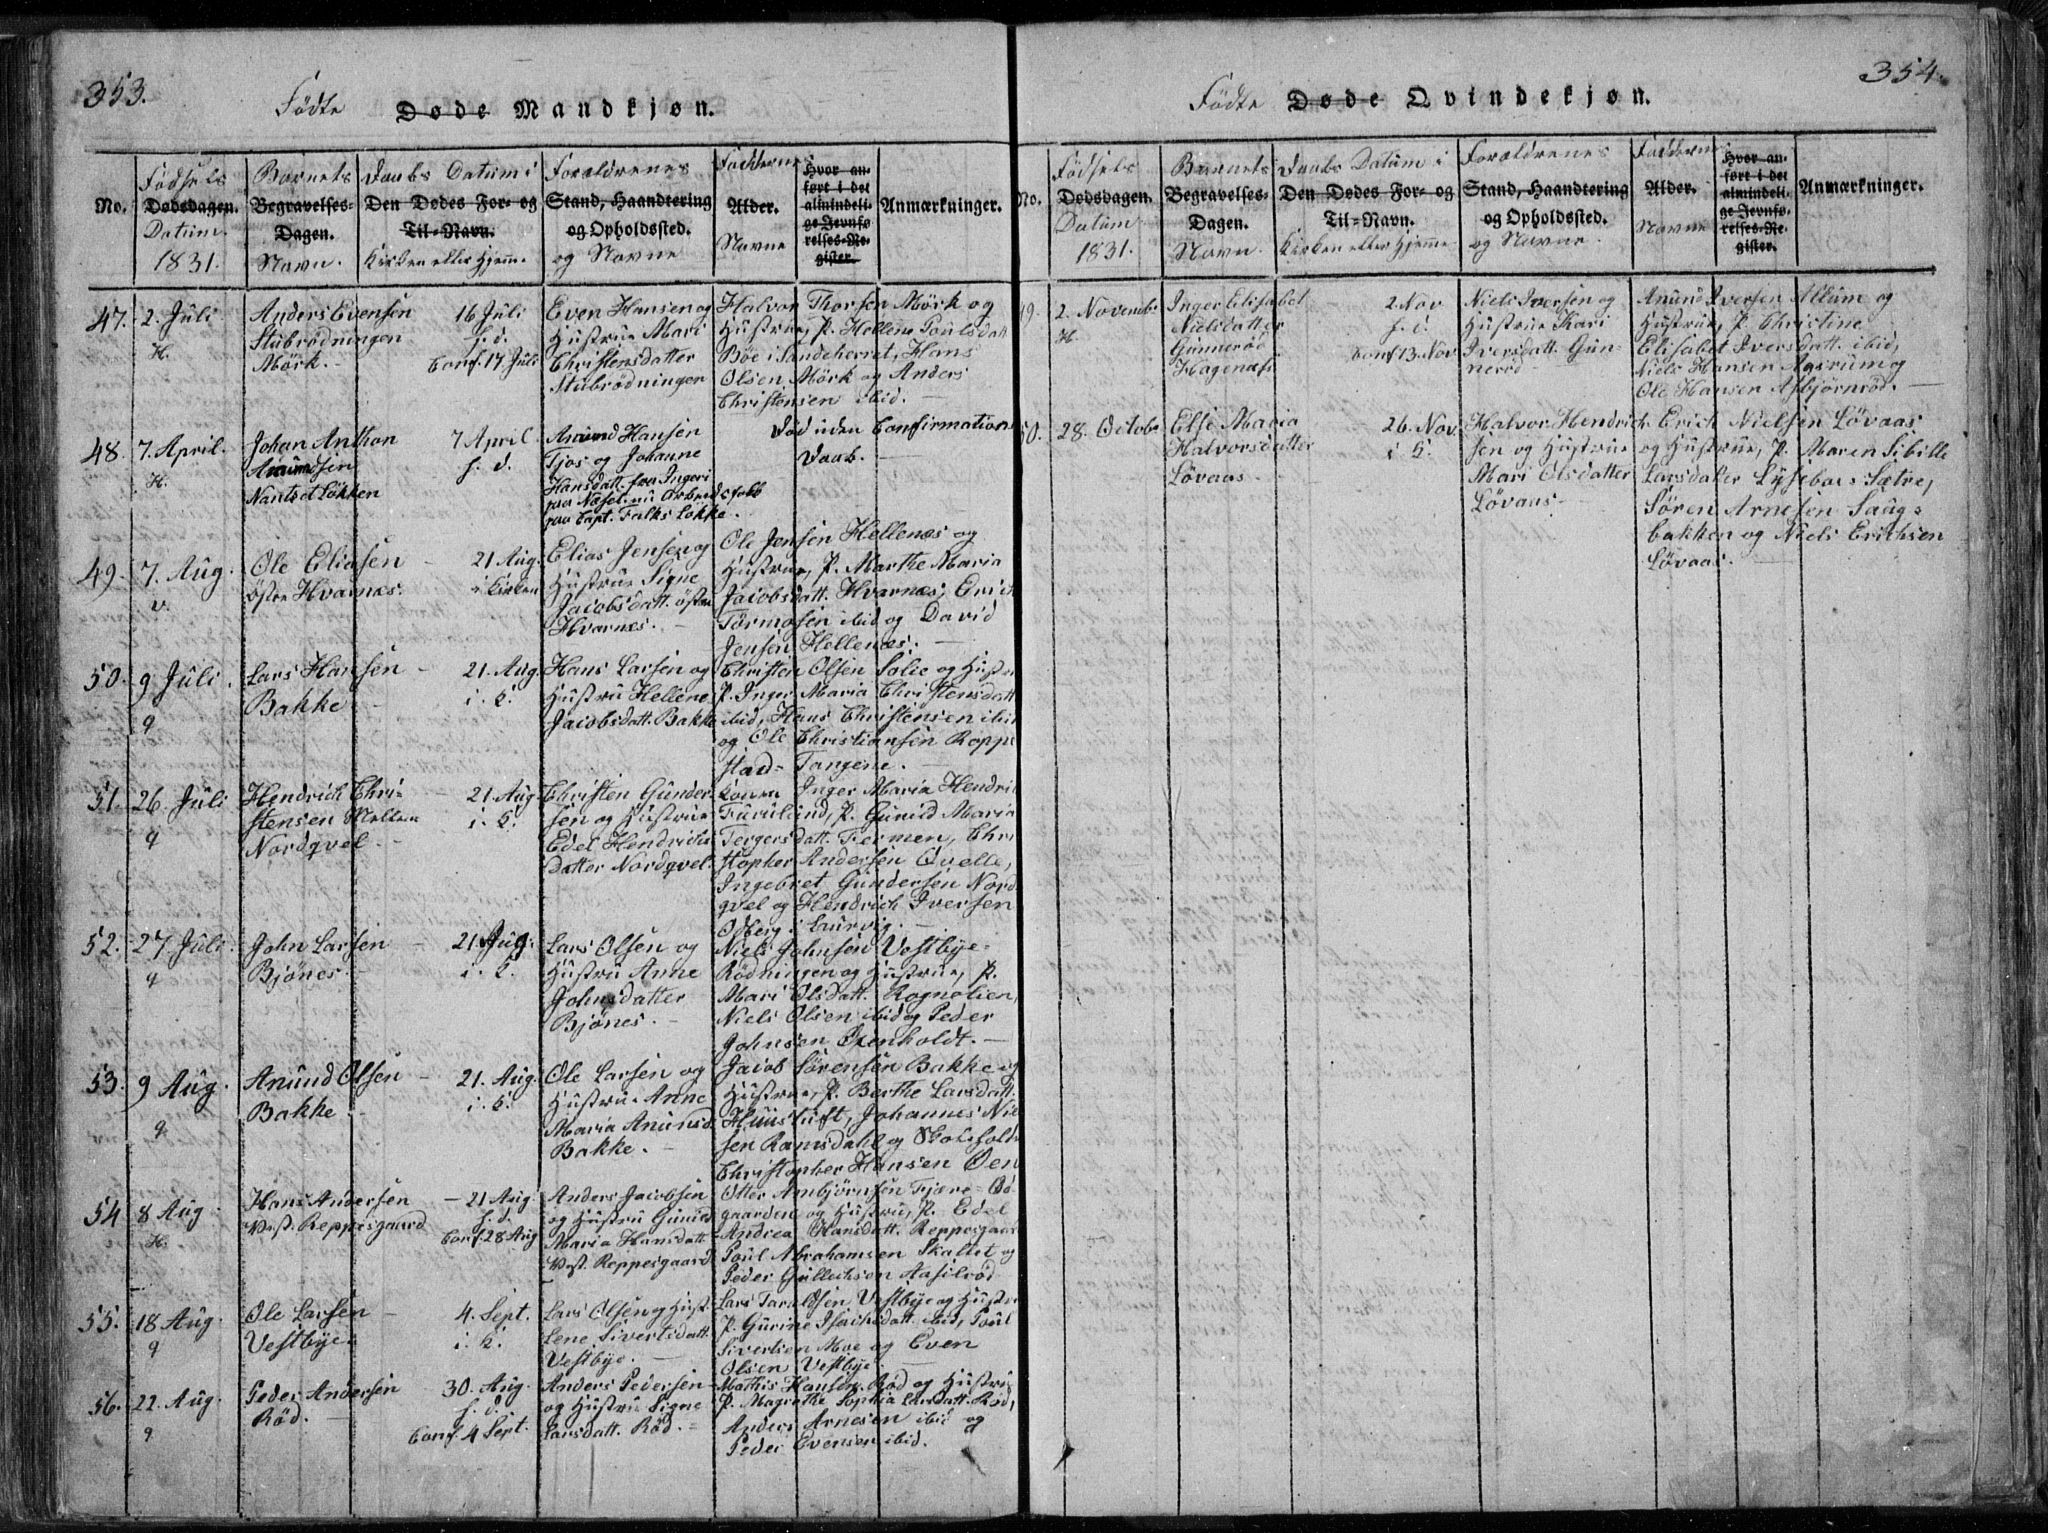 353.
Födte Døde Mandkjøn.
No.
Födsels
Dødsdagen.
Datum.
1831.
Barnets
Begravelses-
Dagen.
Navn.
Daabs Datum i
Den Dødes For- og
Til-Navn.
Kirken eller Hjemme
Forældrenes
Stand, Haandtering
og Opholdssted.
og Navne
Faddernes
Alder.
Navne
Hvor an-
ført i det
almindeli-
ge Jevnfø-
relses-Re-
gister.
Anmærkninger.
47.
2. Juli
H.
Anders Evensen
Stubrödningen
Mörk.
16 Juli
h. d.
Conf. 17 Juli
Even Hansen og
Hustrue Mari
Christensdatter
Stubrödningen
Halvor Thorsen Mörk og
Hustrue, P. Hellene Poulsdatt
Böe i Sandeherret, Hans
Olsen Mörk og Anders
Christensen ibid.
48.
7. April.
H.
Johan Anthon
Amundsen
Nantset Løkken
7 April.
h. d.
Amund Hansen
Tjos og Johanne
Hansdatt. fra Ingeri
paa Næset nu Arbeidsfolk
paa Capt. Falks Løkke.
Död uden Confirmation
Daab.
49.
7. Aug.
v.
Ole Eliasen
öster Hvarnæs.
21 Aug.
i Kirken
Elias Jensen og
Hustrue Signe
Jacobsdatt. öster
Hvarnæs.
Ole Jensen Hellenæs og
Hustrue, P. Marthe Maria
Jacobsdatt. Hvarnæs, Erich
Tormosen ibid og David
Jensen Hellenæs.
50.
9 Juli.
q
Lars Hansen
Bakke
21 Aug.
i. K.
Hans Larsen og
Hustru Hellene
Jacobsdatt. Bakke
Christen Olsen Solie og Hustru
P. Inger Maria Christensdatt
ibid, Hans Christensen ibid
og Ole Christiansen Roppe
stad-Tangene.
51.
26. Juli
q
Hendrich Chri-
stensen Mellem
Nordqvel.
21. Aug
i. K.
Christen Gunder-
sen og Hustrue
Edel Hendrichs
datter Nordqvel.
Konen Inger Maria Hendri
Furulund, P. Gunild Maria
Tergersdatt. Fermen, Chri
stopher Andersen Qvelle,
Ingebret Gundersen Nord
qvel og Hendrich Iversen
Odberg i Laurvig.
52.
27. Juli.
q
John Larsen
Bjönes.
21. Aug.
i. K.
Lars Olsen og
Hustru Anne
Johnsdatter
Bjönes.
Niels Johnsen Vestbye-
Rödningen og Hustrue, P.
Mari Olsdatt. Rognelien,
Niels Olsen ibid og Peder
Johnsen Oxenholdt.
53.
9 Aug.
q.
Anund Olsen
Bakke
21. Aug.
i. K.
Ole Larsen og
Hustrue Anne
Maria Anunds.
Bakke.
Jacob Sörensen Bakke og
Hustrue, P. Berthe Larsdatt.
Huustuft, Johannes Niel
sen Ramsdahl og
Christopher Hansen Oen
54
8 Aug.
H.
Hans Andersen
Vest. Reppesgaard
21 Aug.
h. d.
Conf. 28 Aug
Anders Jacobsen
og Hustru Gunild
Maria Hansdatt.
Vest. Reppesgaard
Otter Ambjörnsen Tjære-Öd-
gaarden og Hustru, P. Edel
Andrea Hansdatt. Reppesgaard
Poul Abrahamsen Skaltet og
Peder Gullichsen Aasilröd
55.
18 Aug.
q
Ole Larsen
Vestbye
4. Sept.
i. K.
Lars Olsen og Hust.
Lene Sivertsdatt.
Vestbye.
Lars Taraldsen Vestbye og Hustru
P. Gurine Isachsdatt. ibid, Poul
Sivertsen Moe og Even
Olsen Vestbye.
56.
22. Aug.
q.
Peder Andersen
Röd.
30. Aug.
h. d.
Conf. 4 Sept.
Anders Pedersen
og Hustrue Signe
Larsdatt. Röd.
Mathis Hansen Röd og Hustru
P. Magrethe Sophia Larsdatt. Röd,
Anders Arnesen ibid og
Peder Evensen ibid.
354.
Födte Døde Qvindekjøn.
No.
Födsels
Dødsdagen.
Datum
1831.
Barnets
Begravelses-
Dagen.
Navn.
Daabs Datum i
Den Dødes For- og
Til-Navn.
Kirken eller Hjemme
Forældrenes
Stand, Haandtering
og Opholdssted.
og Navne.
Faddernes
Alder.
Navne
Hvor an-
ført i det
almindeli-
ge Jevnfø-
relses-Re-
gister.
Anmærkninger.
49.
2. Novemb.
H.
Inger Elisabet
Nielsdatter
Gunneröd
Hagenæs.
2. Nov
h. d.
Conf 13. Nov.
Niels Iversen og
Hustrue Kari
Iversdatt. Gun-
neröd
Anund Iversen Allum og
Hustrue, P. Christine
Elisabet Iversdatt. ibid,
Niels Hansen Aasrum og
Ole Hansen Asbjörnröd.
50.
28. Octob.
Else Maria
Halvorsdatter
Lövaas
26. Nov.
i K.
Halvor Hendrich
sen og Hustrue
Mari Olsdatter
Lövaas
Erich Nielsen Lövaas
og Hustrue, P. Maren Sibille
Larsdatter Lyseboe-Sætre,
Sören Arnesen Saug-
bakken og Niels Erichsen
Lövaas.